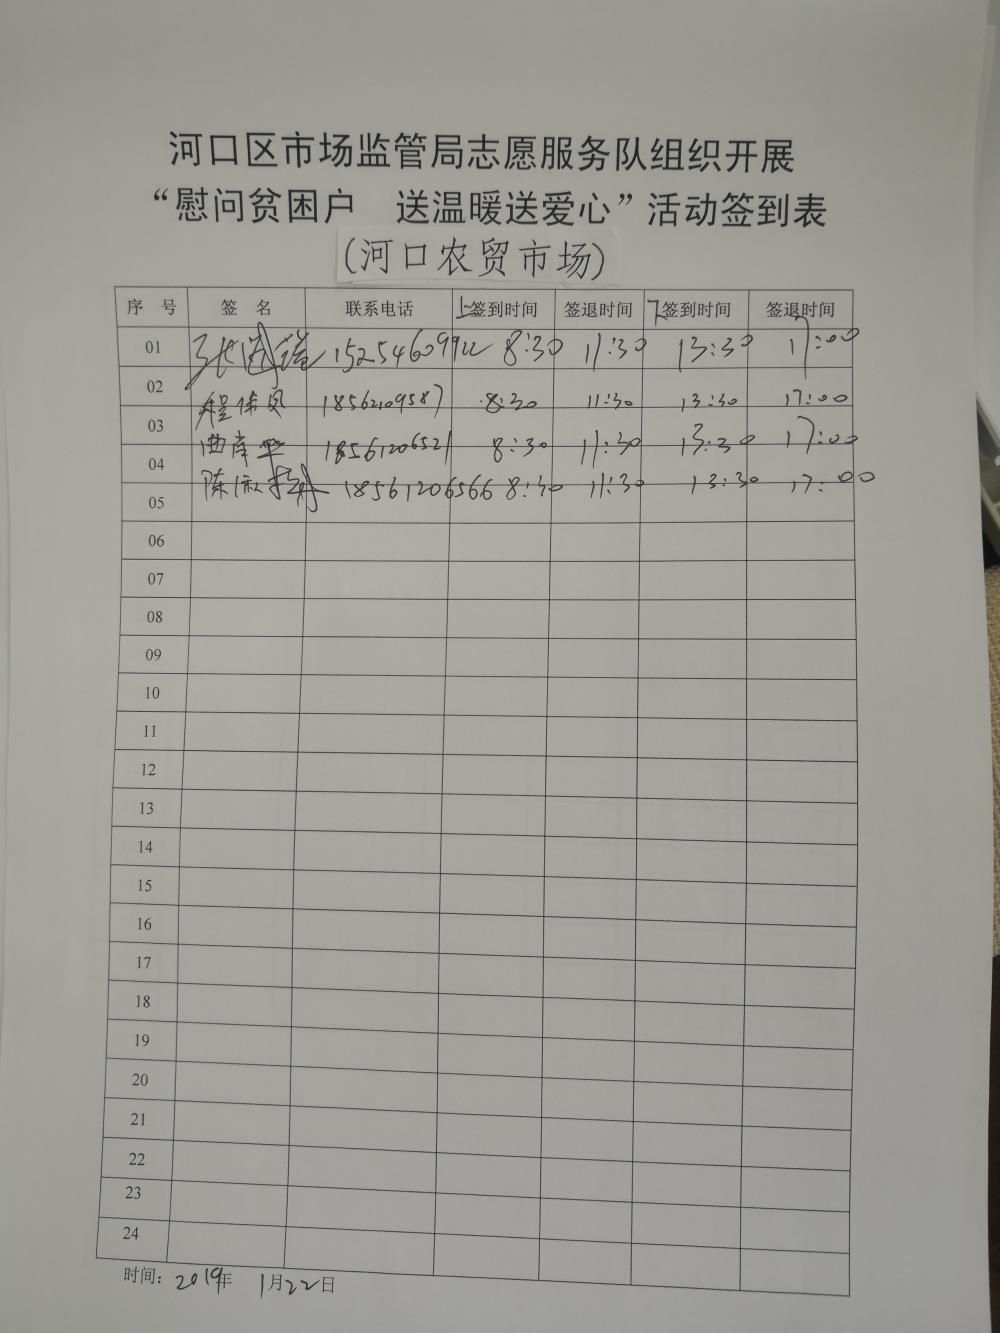 河口区市场监管局志愿服务队组织开展
“慰问贫困户 送温暖送爱心”活动签到表
(河口农贸市场)
序 号 签 名 联系电话 上签到时间 签退时间 下签到时间 签退时间
01 张 15254609922 8:30 11:30 13:30 17:00
02 程 18562109587 8:30 11:30 13:30 17:00
03 曲 18561206521 8:30 11:30 13:30 17:00
04 陈 18561206566 8:30 11:30 13:30 17:00
05
06
07
08
09
10
11
12
13
14
15
16
17
18
19
20
21
22
23
24
时间：2019年 1月22日